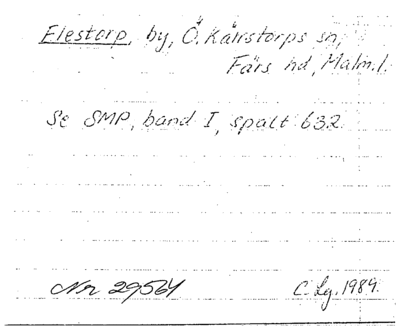 Elestorp, by, Ö. Kärrstorps sn,
Färs hd, Malm.l.
Se SMP, band I, spalt 632.
Nr 29564
C. Lg. 1989.